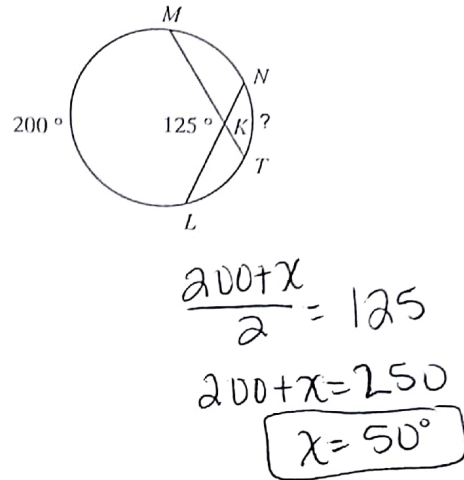 M
N
200° 125° K ?
T
L
200+x
2
= 125
200+x=250
x=50°